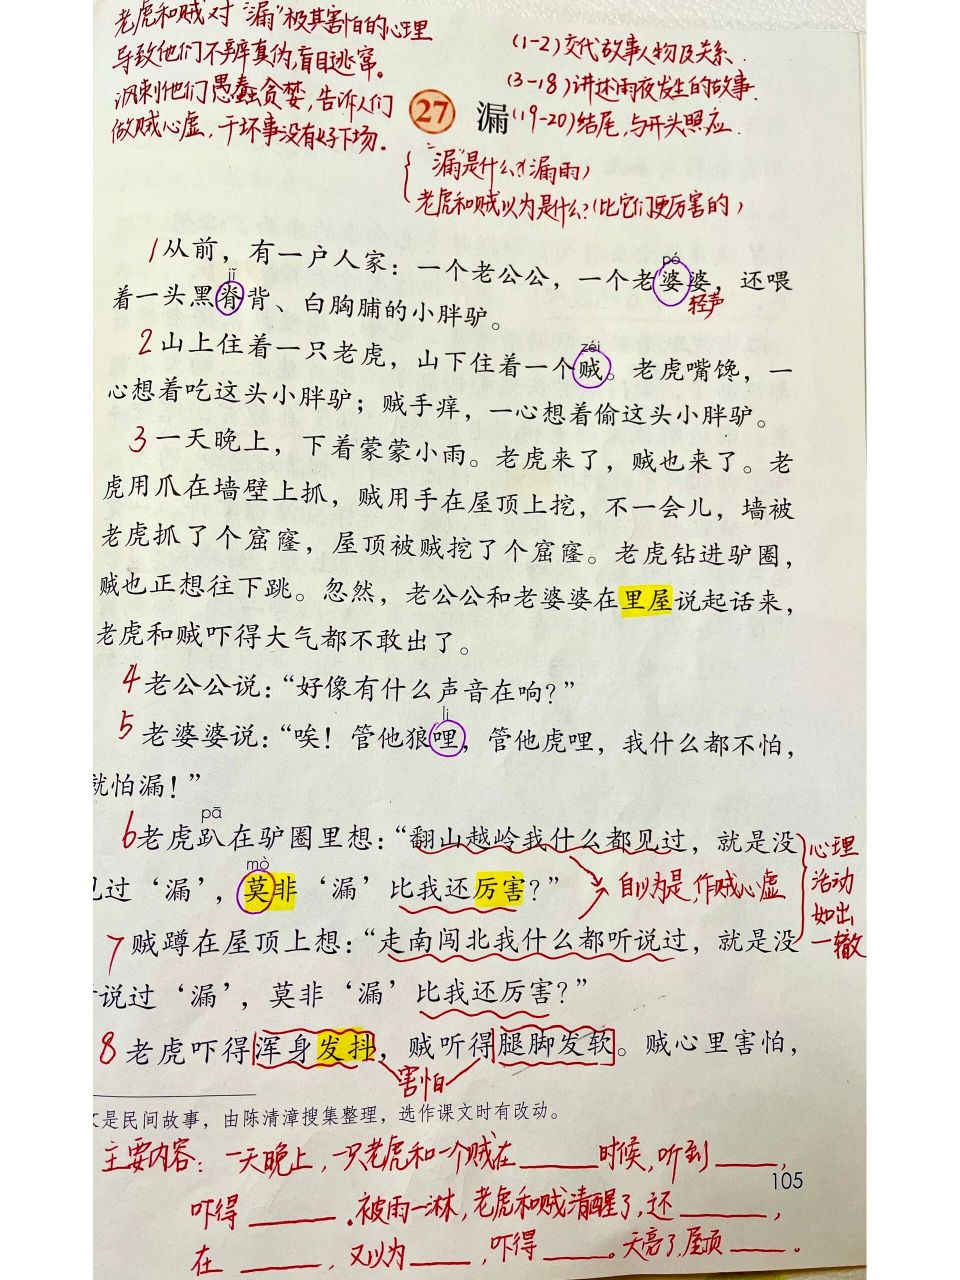 老虎和贼对“漏”极其害怕的心理
导致他们不辨真伪,盲目逃窜。
讽刺他们愚蠢贪婪,告诉人们
做贼心虚,干坏事没有好下场.
(1-2)交代故事人物及关系.
(3-18)讲述雨夜发生的故事.
(19-20)结尾,与开头照应.
27 漏
“漏”是什么?(漏雨)
老虎和贼以为是什么?(比它们更厉害的)
1 从前，有一户人家：一个老公公，一个老婆婆，还喂
pó
轻声
jǐ
着一头黑脊背、白胸脯的小胖驴。
zéi
2 山上住着一只老虎，山下住着一个贼。老虎嘴馋，一
心想着吃这头小胖驴；贼手痒，一心想着偷这头小胖驴。
3 一天晚上，下着蒙蒙小雨。老虎来了，贼也来了。老
虎用爪在墙壁上抓，贼用手在屋顶上挖，不一会儿，墙被
老虎抓了个窟窿，屋顶被贼挖了个窟窿。老虎钻进驴圈，
贼也正想往下跳。忽然，老公公和老婆婆在里屋说起话来，
老虎和贼吓得大气都不敢出了。
4 老公公说：“好像有什么声音在响？”
li
5 老婆婆说：“唉！管他狼哩，管他虎哩，我什么都不怕，
就怕漏！”
pā
6 老虎趴在驴圈里想：“翻山越岭我什么都见过，就是没
mò
见过‘漏’，莫非‘漏’比我还厉害？”
自以为是,作贼心虚
心理
活动
如出
一辙
7 贼蹲在屋顶上想：“走南闯北我什么都听说过，就是没
说过‘漏’，莫非‘漏’比我还厉害？”
8 老虎吓得浑身发抖，贼听得腿脚发软。贼心里害怕，
害怕
文是民间故事，由陈清漳搜集整理，选作课文时有改动。
主要内容：一天晚上,一只老虎和一个贼在____时候,听到____,
105
吓得____.被雨一淋,老虎和贼清醒了,还____,
在____,又以为____,吓得____。天亮了,屋顶____。